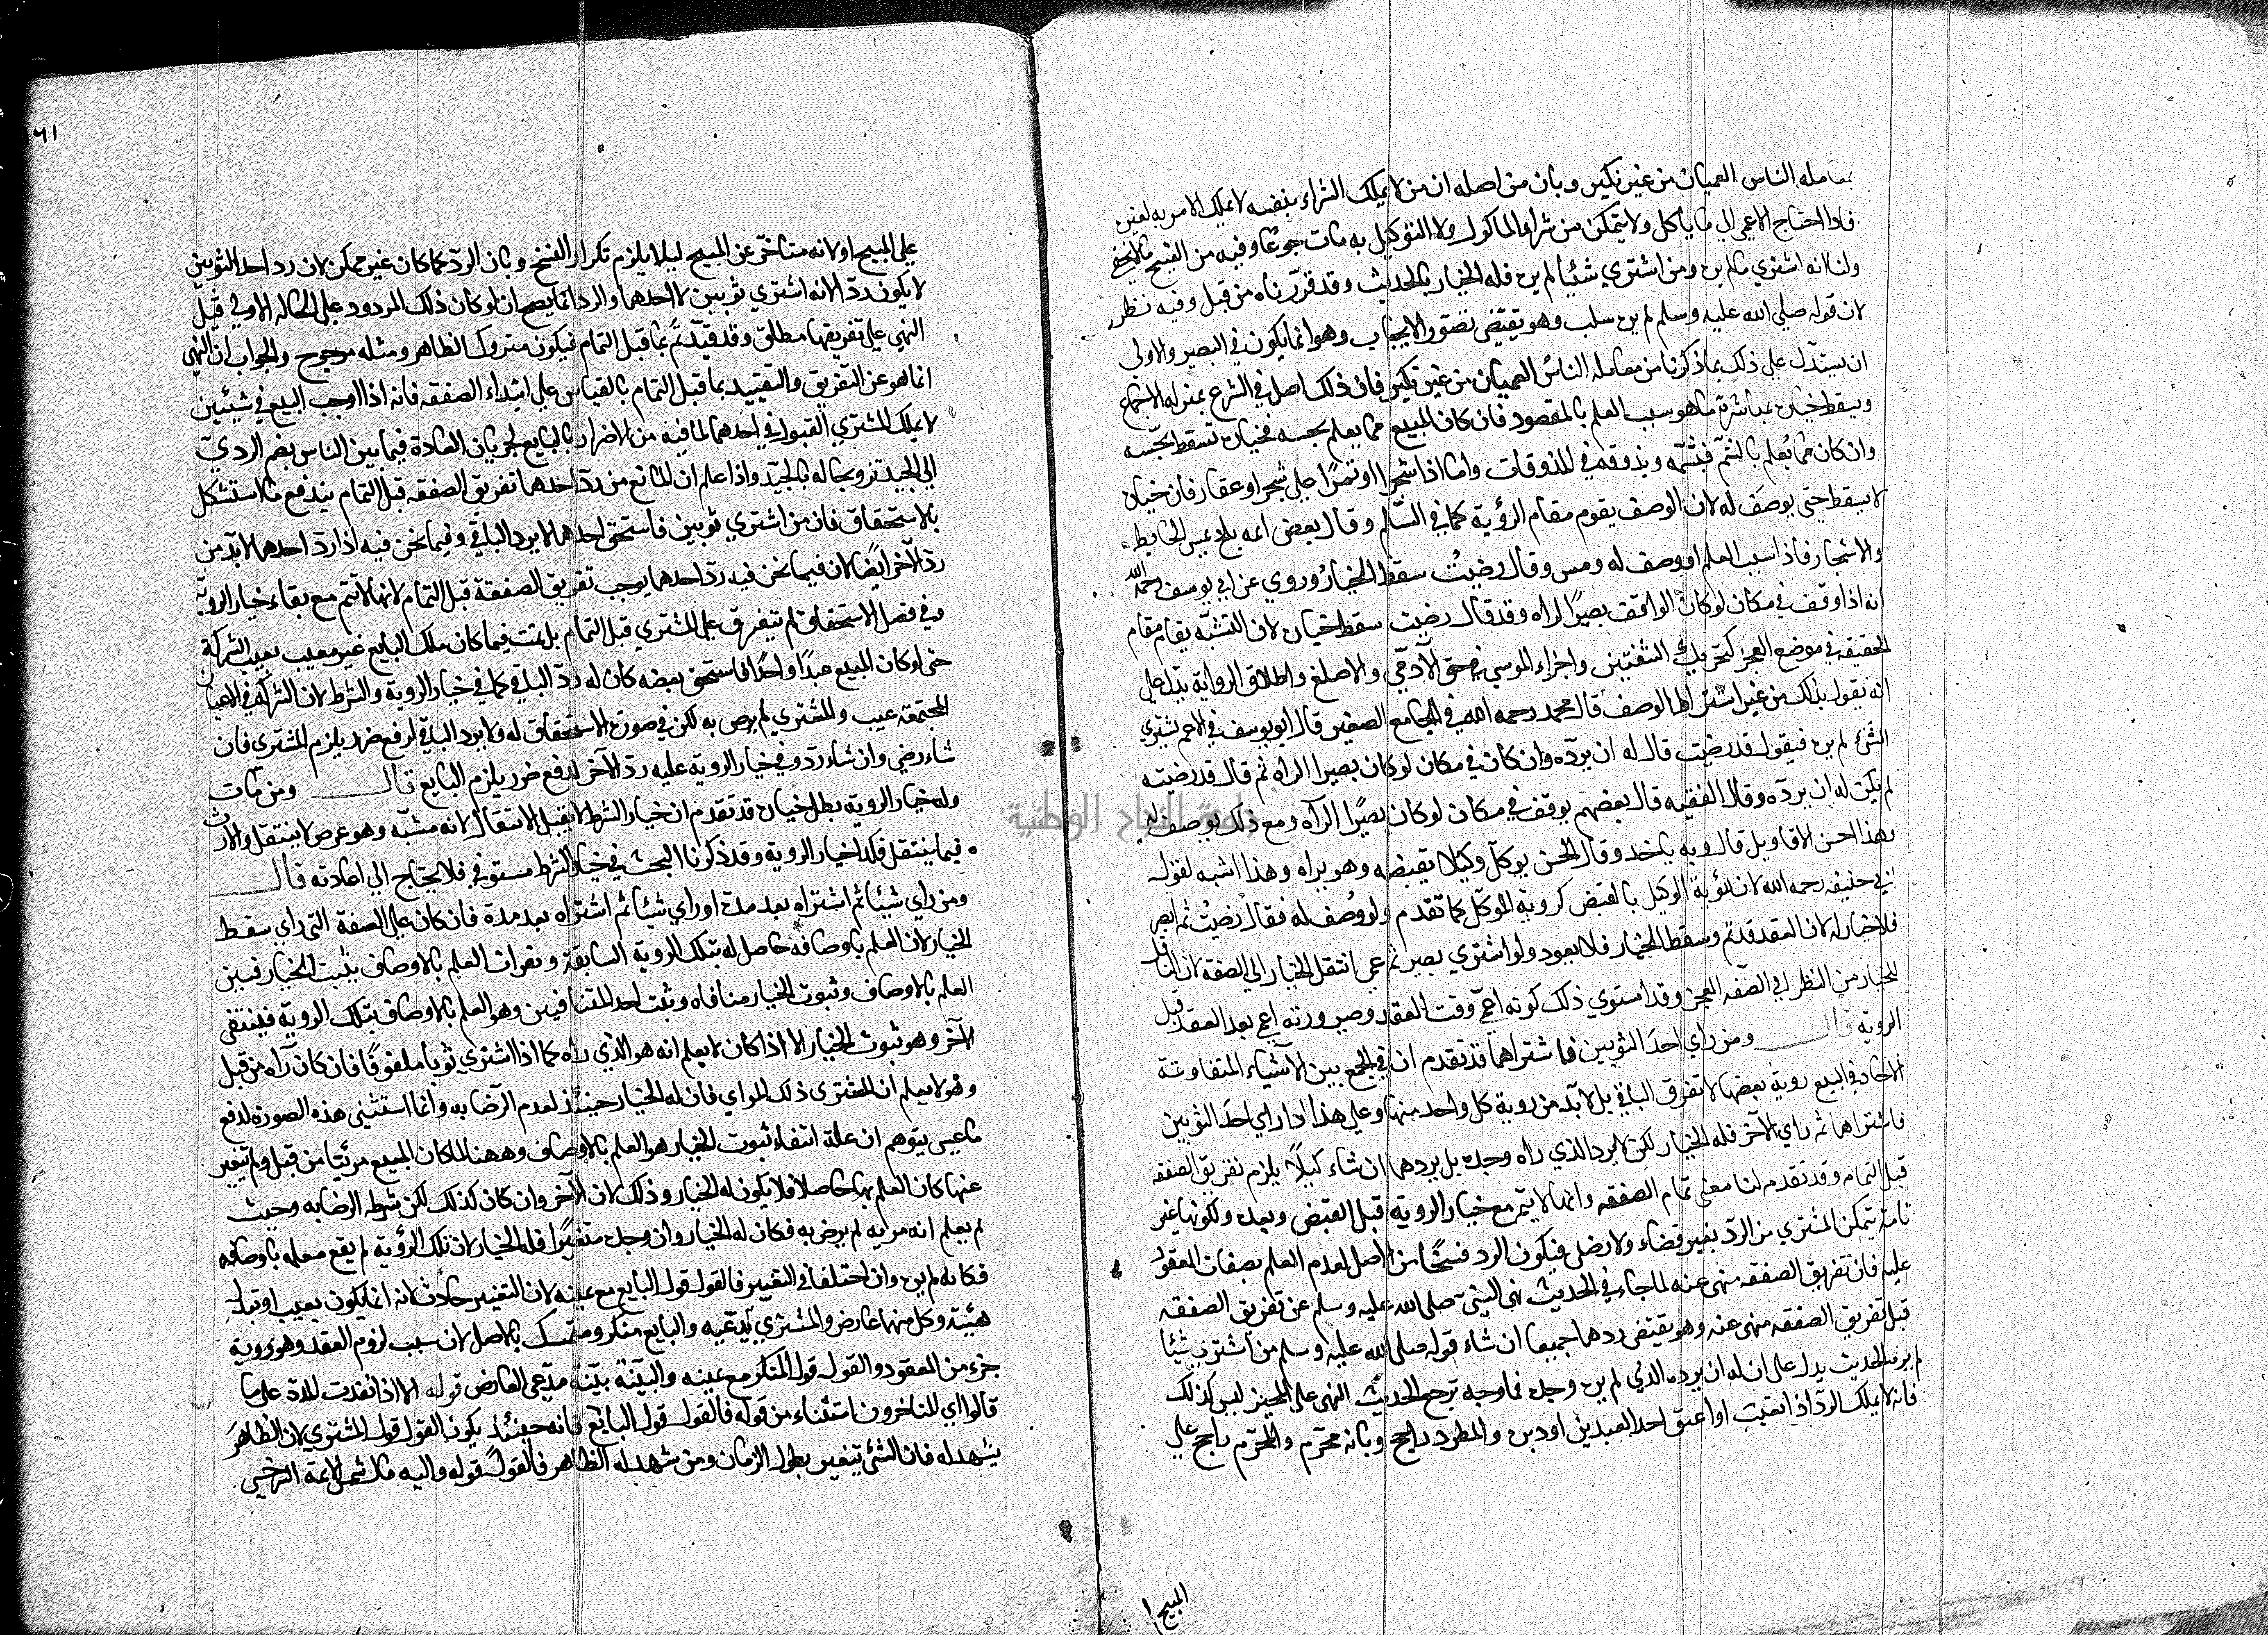 بمعامله الناس العميان من غير نكير وبان من اصله ان من لا يملك الشراء بنفسه لا يملك الامر به لغيره
فاذا احتاج الاعمى الي ما ياكل ولا يتمكن من شراء الماكول ولا التوكيل به مات جوعًا وفيه من القبح ما لا يخفى
ولنا انه اشترى مالم يره ومن اشترى شيئا لم يره فله الخيار بالحديث وقد قررناه من قبل وفيه نظر
لان قوله صلى الله عليه وسلم لم يره سلب وهو يقتضى تصور الايجاب وهو انما يكون في البصير والاولى
ان يستدل على ذلك بما ذكرنا من معامله الناس العميان من غير نكير فان ذلك اصل في الشرع بمنزله الاجماع
ويسقط خياره بمباشرة ما هو سبب العلم بالمقصود فان كان المبيع مما يعلم بجسه فخياره تسقط بجسّه
وان كان مما يُعلم بالشم فشمّه وبذوقه في المذوقات واما اذا شجرا او ثمرًا على شجر او عقار فان خياره
لا يسقط حتى يوصف له لان الوصف يقوم مقام الرؤية كما في السّلم وقال بعض ايمه بلخ يمس الحايط
والاشجار فاذا سبب العلم او وصف له ومس وقال رضيتُ سقط الخيار وروي عن ابي يوسف رحمه الله
انه اذا وقف في مكان لو كان الواقف بصيرًا لراه وقد قال رضيت سقط خياره لان التشبّه يقام مقام
الحقيقه في موضع العجز كتحريك الشفتين واجراء الموسي في حق الآدمي والاصلع واطلاق الرواية يدل على
انه يقول بذلك من غير اشتراط الوصف قال محمد رحمه الله في الجامع الصغير قال ابو يوسف في الاعمى يشتري
الشئ لم يره فيقول قد رضيت قال له ان يردّه وان كان في مكان لو كان بصيرا الراه ثم قال قد رضيته
لم يكن له ان يردّه وقال الفقيه قال بعضهم يوقف في مكان لو كان بصيرًا الرآه ومع ذلك يوصف له
وهذا احسن الاقاويل قال وبه ياخد وقال الحسن يوكل وكيلا يقبضه وهو يراه وهذا اشبه لقول
ابي حنيفه رحمه الله لان رؤية الوكيل بالقبض كروية الموكل كما تقدم ولو وُصف له فقال رضيتُ ثم ابصر
فلا خيار له لان العقد قد تم وسقط الخيار فلا يعود ولو اشترى بصير ثم عمى انتقل الخيار الي الصفه لان الناقل
للخيار من النظر الي الصفه العجز وقد استوي ذلك كونه اعمى وقت العقد وصيرورته اعمى بعد العقد قبل
الروية قال ومن راي احد الثوبين فاشتراهما قد تقدم ان في الجمع بين الاشياء المتفاوتة
الاحاد في البيع روية بعضها لا تفرق الباقي بل لا بد من روية كل واحد منها وعلى هذا اذا راي احد الثوبين
فاشتراهما ثم راي الآخر فله الخيار لكن لا يرد الذي راه وحده بل يردهما ان شاء كيلا يلزم تفريق الصفقه
قبل التمام وقد تقدم لنا معنى تمام الصفقه وانها لا يتم مع خيار الروية قبل القبض وبعده ولكونها غير
تامة يتمكن المشترى من الردّ بغير قضاء ولا رضى فيكون الرد فسخًا من الاصل لعدم العلم بصفات المعقود
عليه فان تفريق الصفقه منهى عنه لما جاء في الحديث نهى النبي صلى الله عليه وسلم عن تفريق الصفقه
قبل تفريق الصفقه منهى عنه وهو يقتضى ردهما جميعا ان شاء قوله صلى الله عليه وسلم من اشترى شيئا
لم يره الحديث يدل على ان له ان يرده الذي لم يره وحده فما وجه ترجح الحديث النهى على المجيز ليس كذلك
فانه لا يملك الردّ اذا تعيبت او اعتق احد العبدين او دبر والمطرد راجح وبانه محرّم والمحرّم راجح على
المبيح ا
١٦١
على المبيح او لانه متاخّر عن المبيح ليلا يلزم تكرار الفسخ وبان الردّ كما كان غير ممكن لان رد احد الثوبين
لا يكون ردّ الانه اشتري ثوبين لا احدهما والرد انما يصح ان لو كان ذلك المردود على الحاله الاولي قيل
النهي على تفريقها مطلق وقد قيدتم بما قبل التمام فيكون متروك الظاهر ومثله مرجوح والجواب ان النهي
انما هو عن التفريق والتقييد بما قبل التمام بالقياس على ابتداء الصفقه فانه اذا اوجب البيع في شيئين
لا يملك المشتري القبول في احدهما لما فيه من الاضرار بالبايع لجريان العادة فيما بين الناس بضم الردي
الي الجيد ترويجا له بالجيد واذا علم ان المانع من ردّ احدهما تفريق الصفقه قبل التمام يندفع ما استشكل
بالاستحقاق فان من اشتري ثوبين فاستحق احدهما لا يرد الباقي وفيما نحن فيه اذا ردّ احدهما لا بد من
ردّ الآخر ايضًا لان فيما نحن فيه ردّ احدهما يوجب تفريق الصفقة قبل التمام لانها لا تتم مع بقاء خيار الروية
وفي فصل الاستحقاق لم تتفرق على المشتري قبل التمام بل تمت فيما كان ملك البايع غير معيب بعيب الشركة
حتى لو كان المبيع عبدًا واحدًا فاستحق بعضه كان له ردّ الباقي كما في خيار الروية والشرط لان الشركة في الاعيان
المجتمعه عيب والمشتري لم يرض به لكن في صورة الاستحقاق له ولا يرد الباقي لرفع ضرر يلزم المشتري فان
شاء رضي وان شاء ردّ وفي خيار الروية عليه ردّ الآخر لدفع ضرر يلزم البايع قال ومن مات
وله خيار الروية بطل خياره قد تقدم ان خيار الشرط لا يقبل الانتقال لانه مشيّه وهو عرض لا ينتقل والارث
فيما ينتقل فكذا خيار الروية وقد ذكرنا البحث في خيار الشرط مستوفي فلا يحتاج الي اعادته قال
ومن راي شيئا ثم اشتراه بعد مدة او راي شيئا ثم اشتراه بعد مدة فان كان على الصفة التى راي سقط
الخيار لان العلم باوصافه حاصل له بتلك الروية السابقة وبفوات العلم بالاوصاف يثبت الخيار فبين
العلم بالاوصاف وثبوت الخيار منافاه وثبت احد المتنافيين وهو العلم بالاوصاف بتلك الروية فينتفى
الآخر وهو ثبوت الخيار الا اذا كان لا يعلم انه هو الذي راه كما اذا اشترى ثوبا ملفوفًا فان كان رآه من قبل
وهو لا يعلم ان المشترى ذلك المراي فان له الخيار حينئذ لعدم الرضا به وانما استثنى هذه الصورة لدفع
ما عسى يتوهم ان علة انتفاء ثبوت الخيار هو العلم بالاوصاف وههنا لما كان المبيع مرئيا من قبل ولم يتغير
عنها كان العلم بها حاصلا فلا يكون له الخيار وذلك لان الآخر وان كان كذلك لكن شرطه الرضا به وحيث
لم يعلم انه مرايه لم يرض به فكان له الخيار وان وجده متغيرًا فله الخيار لان تلك الرؤية لم يقع معلمه باوصافه
فكانه لم يره وان اختلفا في التغيير فالقول قول البايع مع يمينه لان التغيير حادث لانه انما يكون بعيب او تبدل
هيئة وكل منها عارض والمشتري يدّعيه والبايع منكر ومتمسك بالاصل لان سبب لزوم العقد وهو روية
جزء من المعقود والقول قول المنكر مع يمينه والبيّنة بيّنة مدّعي العارض قوله الا اذا نفدت المدة على ما
قالوا اي المتاخرون استثناء من قوله فالقول قول البايع فانه حينئذ يكون القول قول المشتري لان الظاهر
يشهد له فان الشئ يتغير بطول الزمان ومن شهد له الظاهر فالقول قوله واليه مال شمس الائمة السرخسي
جامعة النجاح الوطنية